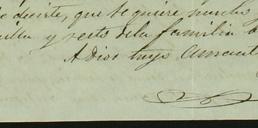 decirte, que te quiere mucho
y resto de la familia
A Dios tuyo amant